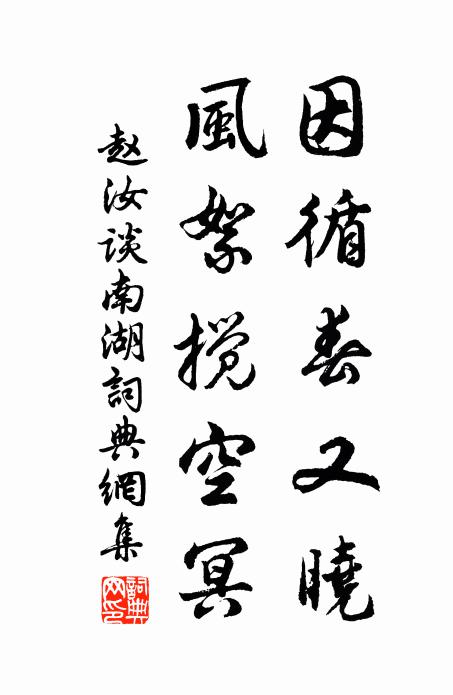 因循春又曉
風絮搅空冥
赵汝谈南湖詞典網集
詞典網印